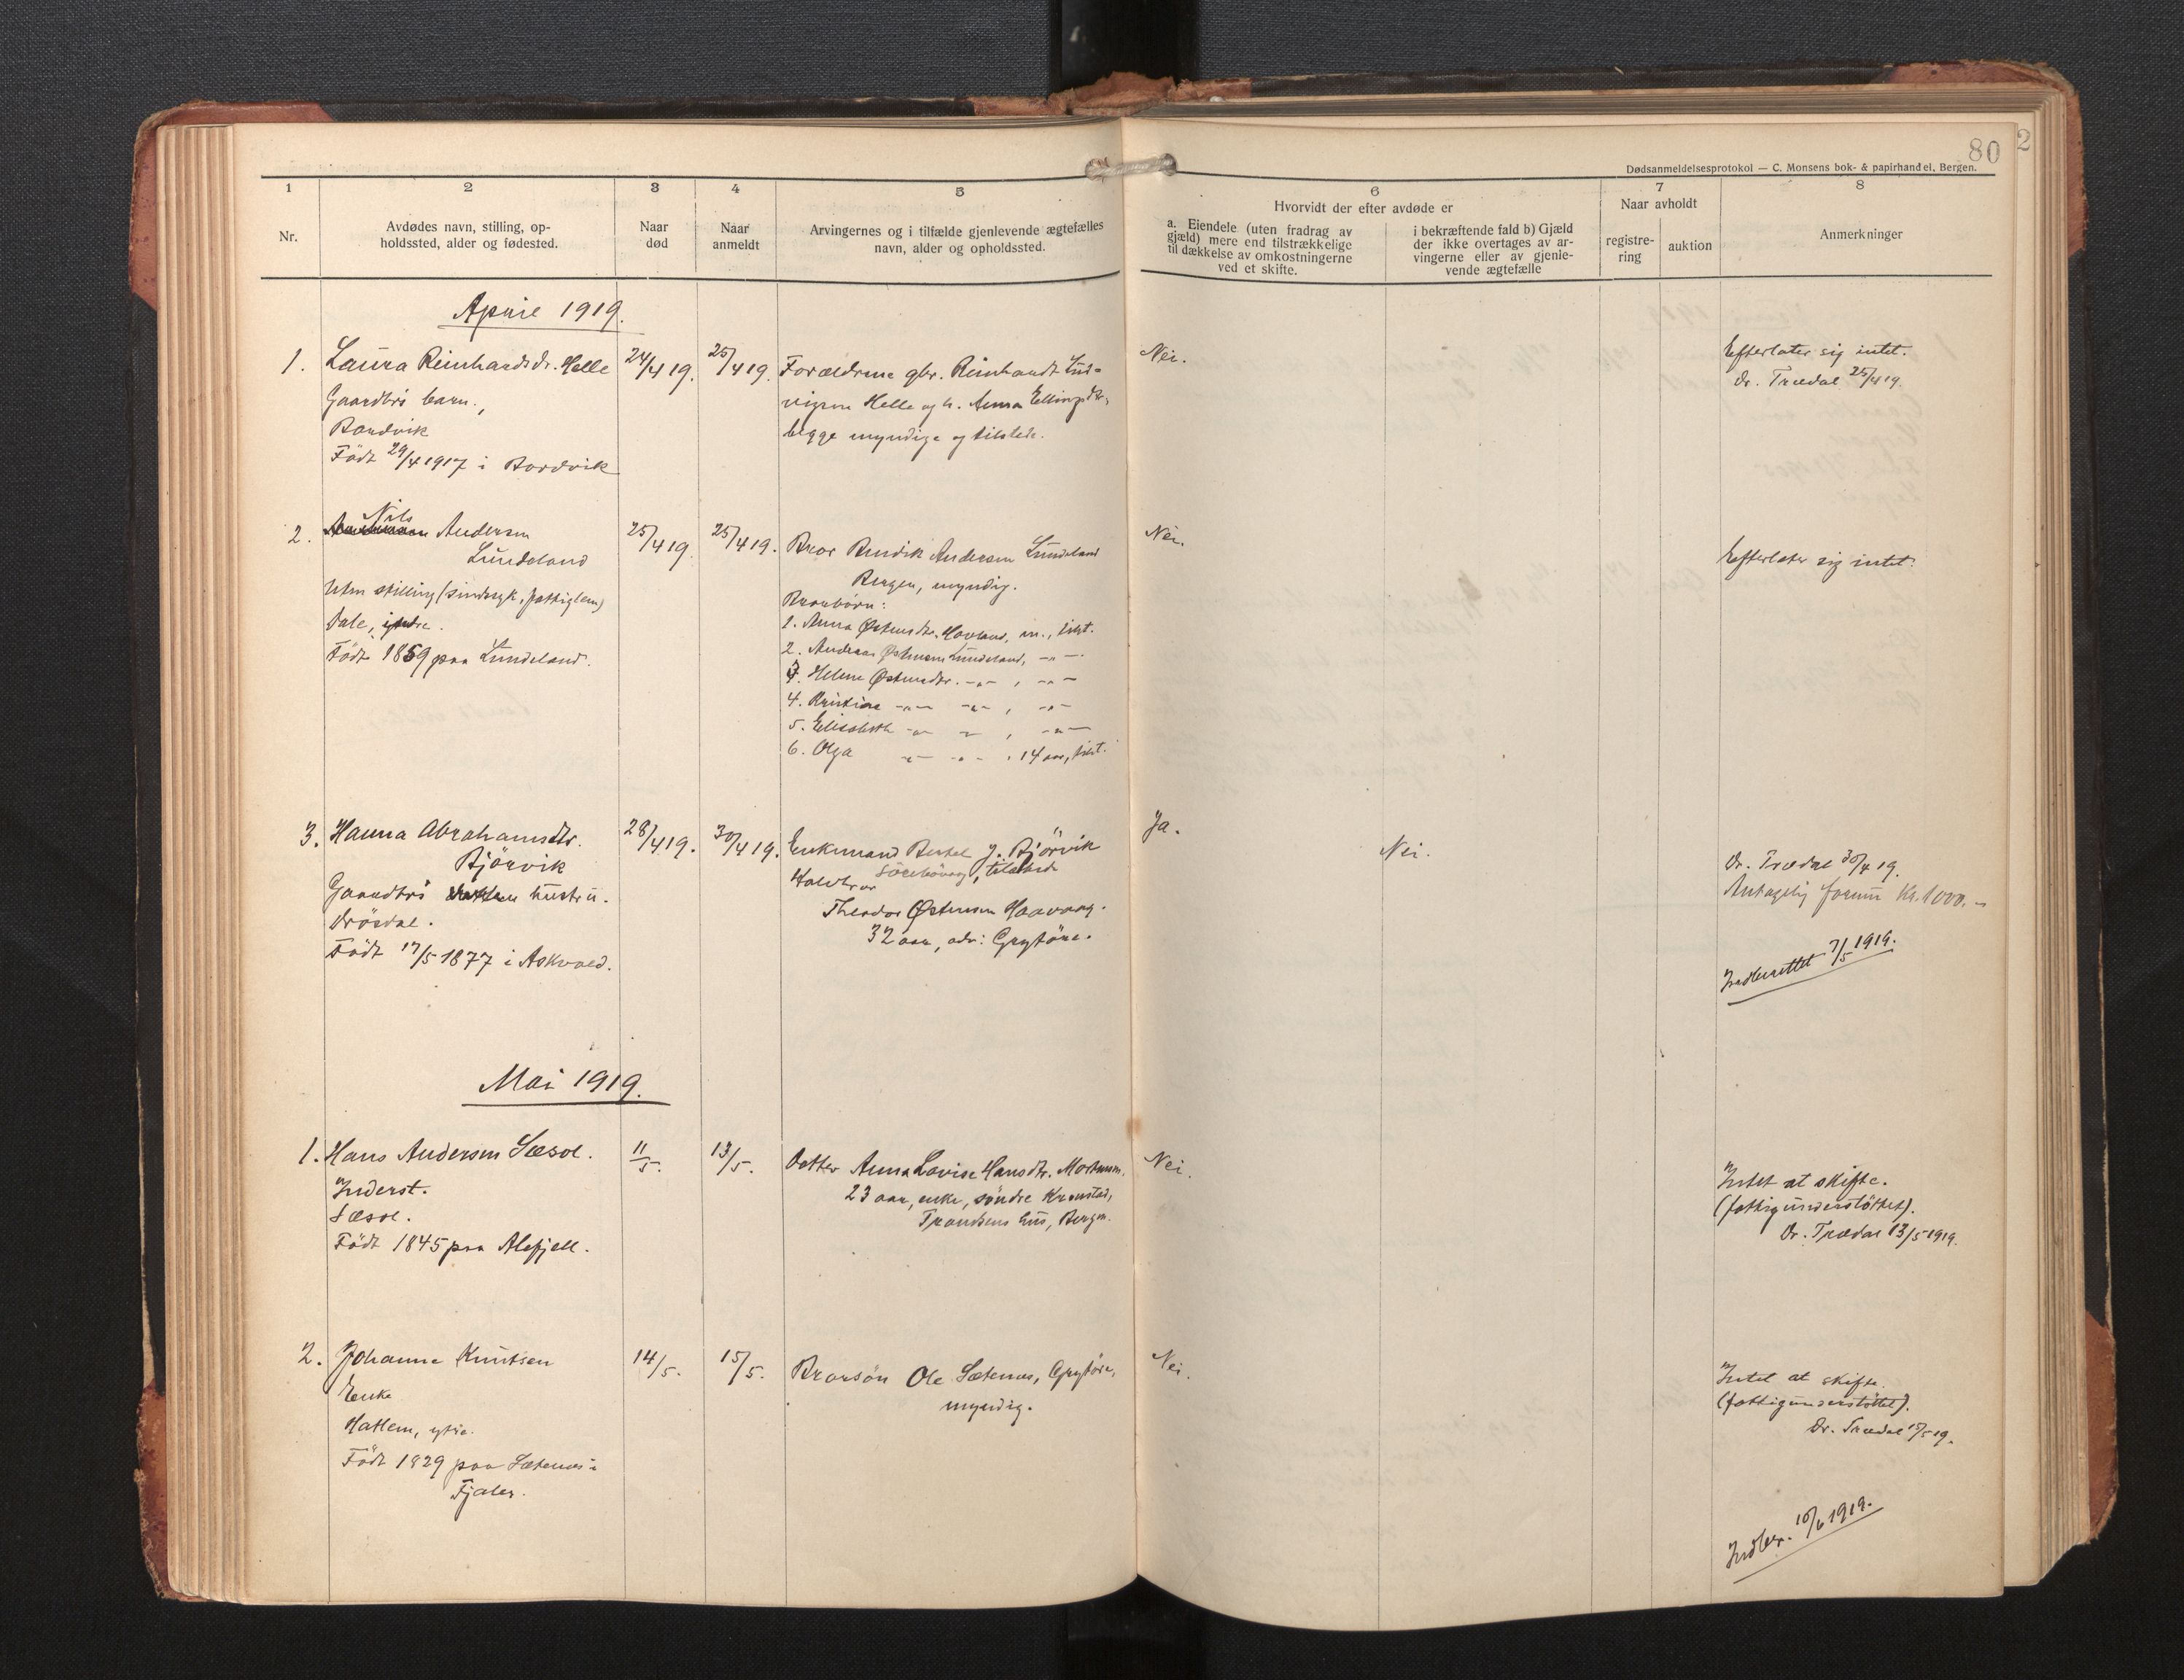 80
2
Dødsanmeldelsesprotokol — C. Monsens bok- & papirhandel, Bergen.
1
2
3
4
5
6
7
8
Nr.
Avdødes navn, stilling, op-
holdssted, alder og fødested.
Naar
død
Naar
anmeldt
Arvingernes og i tilfælde gjenlevende ægtefælles
navn, alder og opholdssted.
Hvorvidt der efter avdøde er
a. Eiendele (uten fradrag av
gjæld) mere end tilstrækkelige
til dækkelse av omkostningerne
ved et skifte.
i bekræftende fald b) Gjæld
der ikke overtages av ar-
vingerne eller av gjenle-
vende ægtefælle
Naar avholdt
registre-
ring
auktion
Anmerkninger
April 1919.
1. Laura Reinhardsdr. Helle
Gaardbr's barn.,
Bordvik
Født 29/4 1917 i Bordvik
24/4 19.
25/4 19.
Forældrene gbr. Reinhardt Lud-
vigsen Helle og h. Anna Ellingsdtr.,
begge myndige og tilstede.
Nei.
Efterlater sig intet.
Dr. Trædal 25/4 19.
2. Nils Andersen
Lundeland
Uten stilling (sindssyk, fattiglem)
Dale, indre.
Født 1859 paa Lundeland.
25/4 19.
25/4 19.
Bror Bendik Andersen Lundeland
Bergen, myndig.
Brorbørn:
1. Anna Østensdtr. Hovland, m., tilst.
2. Andreas Østensen Lundeland, -"-
3. Helene Østensdtr. -"- , -"-
4. Kristine -"- -"- , -"-
5. Elisabeth -"- -"- , -"-
6. Olga -"- -"- , 14 aar, tilst.
Nei.
Efterlater sig intet.
3. Hanna Abrahamsdtr.
Bjørvik
Gaardbr's hustru.
Drøsdal.
Født 17/5 1877 i Askvoll.
28/4 19.
30/4 19.
Enkemand Bertel J. Bjørvik
tilstede
Halvbror
Theodor Østensen Haavang.
32 aar, adr: Grytøra.
Ja.
Nei.
Dr. Trædal 30/4 19.
Antagelig formu Kr. 1000.-
Indberettet 7/5 1919.
Mai 1919.
1. Hans Andersen Sæsol.
Inderst.
Sæsol.
Født 1845 paa Alefjell.
11/5.
13/5.
Datter Anna Lovise Hansdtr. Mortensen.
23 aar, enke, søndre Kronstad,
Frandsens hus, Bergen.
Nei.
Intet at skifte.
(fattigunderstøttet).
Dr. Trædal 13/5 1919.
2. Johanne Knutsen
Enke
Hatlem, ytre.
Født 1829 paa Sætenes i
Fjaler.
14/5.
15/5.
Brorsøn Ole Sætenes, Grytøra,
myndig.
Nei.
Intet at skifte.
(fattigunderstøttet).
Dr. Trædal 15/5 19.
Indber. 10/6 1919.